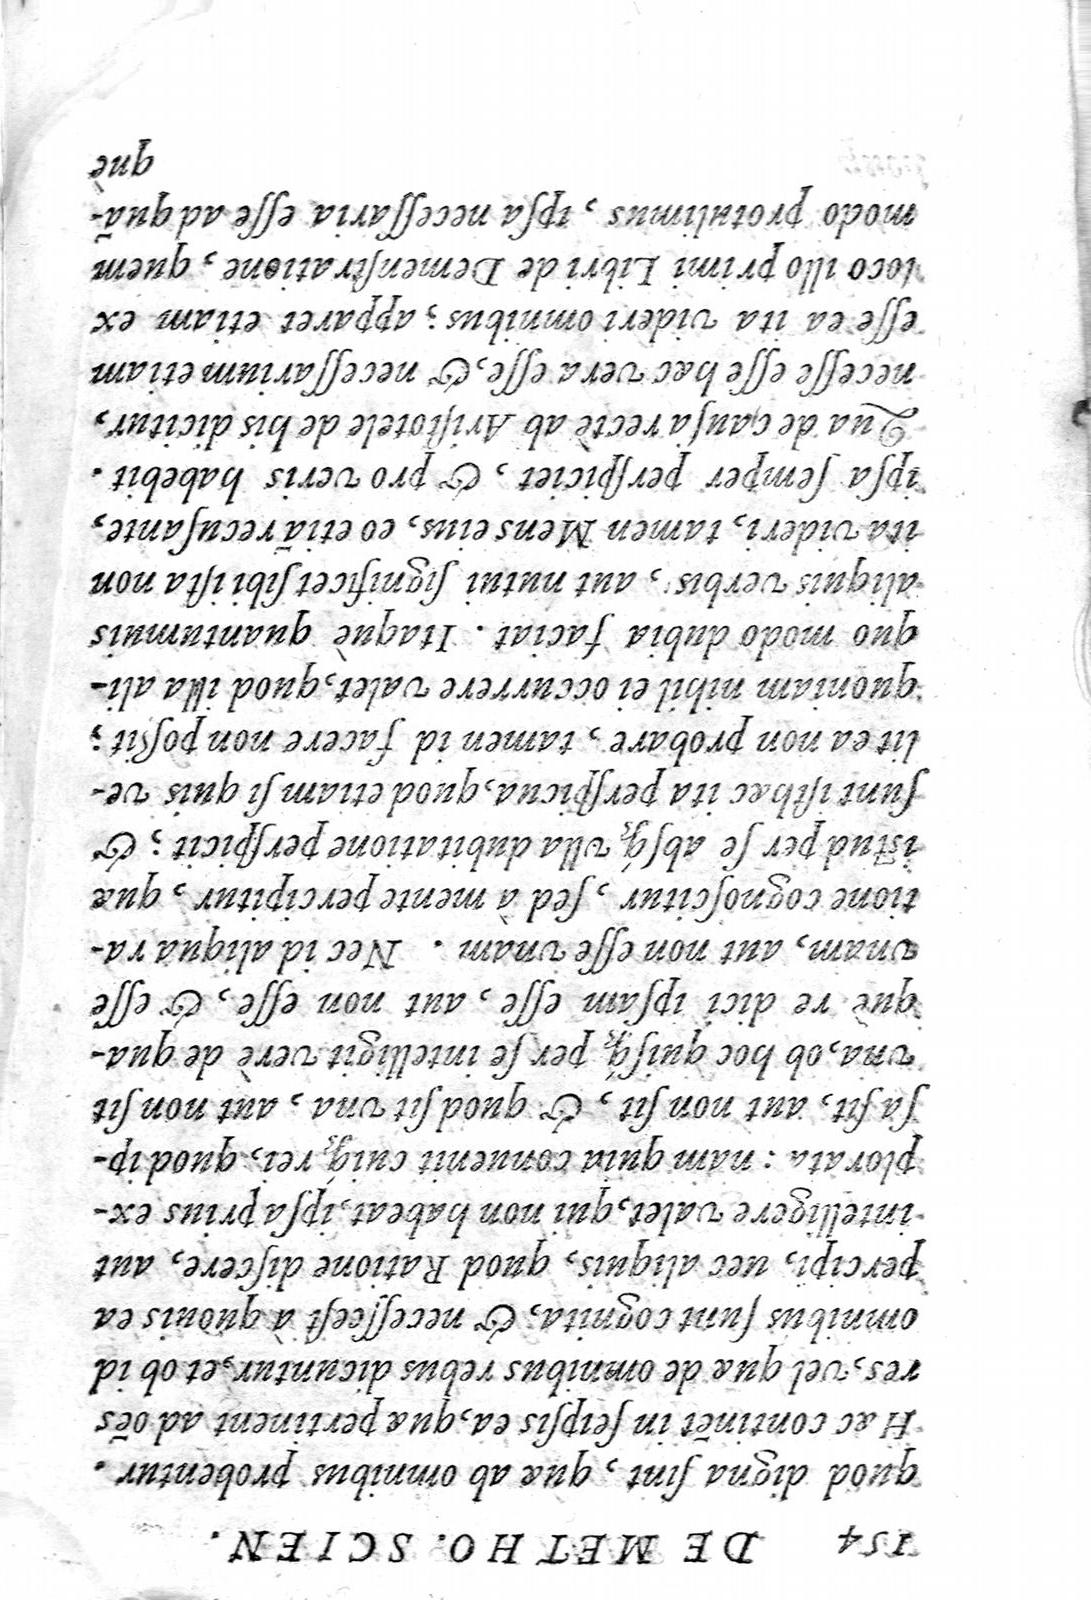 154 DE METHO. SCIEN.
quod digna ſint, quæ ab omnibus probentur.
Hæc continẽt in ſeipſis ea, quæ pertinent ad oẽs
res, vel quæ de omnibus rebus dicuntur, et ob id
omnibus ſunt cognita; & neceſſeeſt à quouis ea
percipi, nec aliquis, quod Ratione diſcere, aut
intelligere valet, qui non habeat, ipſa prius ex-
plorata: nam quia conuenit cuiq́; rei, quod ip-
ſa ſit, aut non ſit, & quod ſit vna, aut non ſit
vna, ob hoc quiſq́; per ſe intelligit verè de qua-
què re dici ipſam eſſe, aut non eſſe, & eſſe
vnam, aut non eſſe vnam. Nec id aliqua ra-
tione cognoſcitur, ſed à mente percipitur, quæ
iſtud per ſe abſq́; vlla dubitatione perſpicit; &
ſunt iſthæc ita perſpicua, quod etiam ſi quis ve-
lit ea non probare, tamen id facere non poſſit;
quoniam nihil ei occurrere valet, quod illa ali-
quo modo dubia faciat. Itaquè quantumuis
aliquis verbis, aut nutui ſignificet ſibi iſta non
ita videri, tamen Mens eius, eo etiã recuſante,
ipſa ſemper perſpiciet, & pro veris habebit.
Qua de cauſa rectè ab Ariſtotele de his dicitur,
neceſſe eſſe hæc vera eſſe, & neceſſarium etiam
eſſe ea ita videri omnibus; apparet etiam ex
loco illo primi Libri de Demenſtratione, quem
modo protulimus, ipſa neceſſaria eſſe ad quã-
què